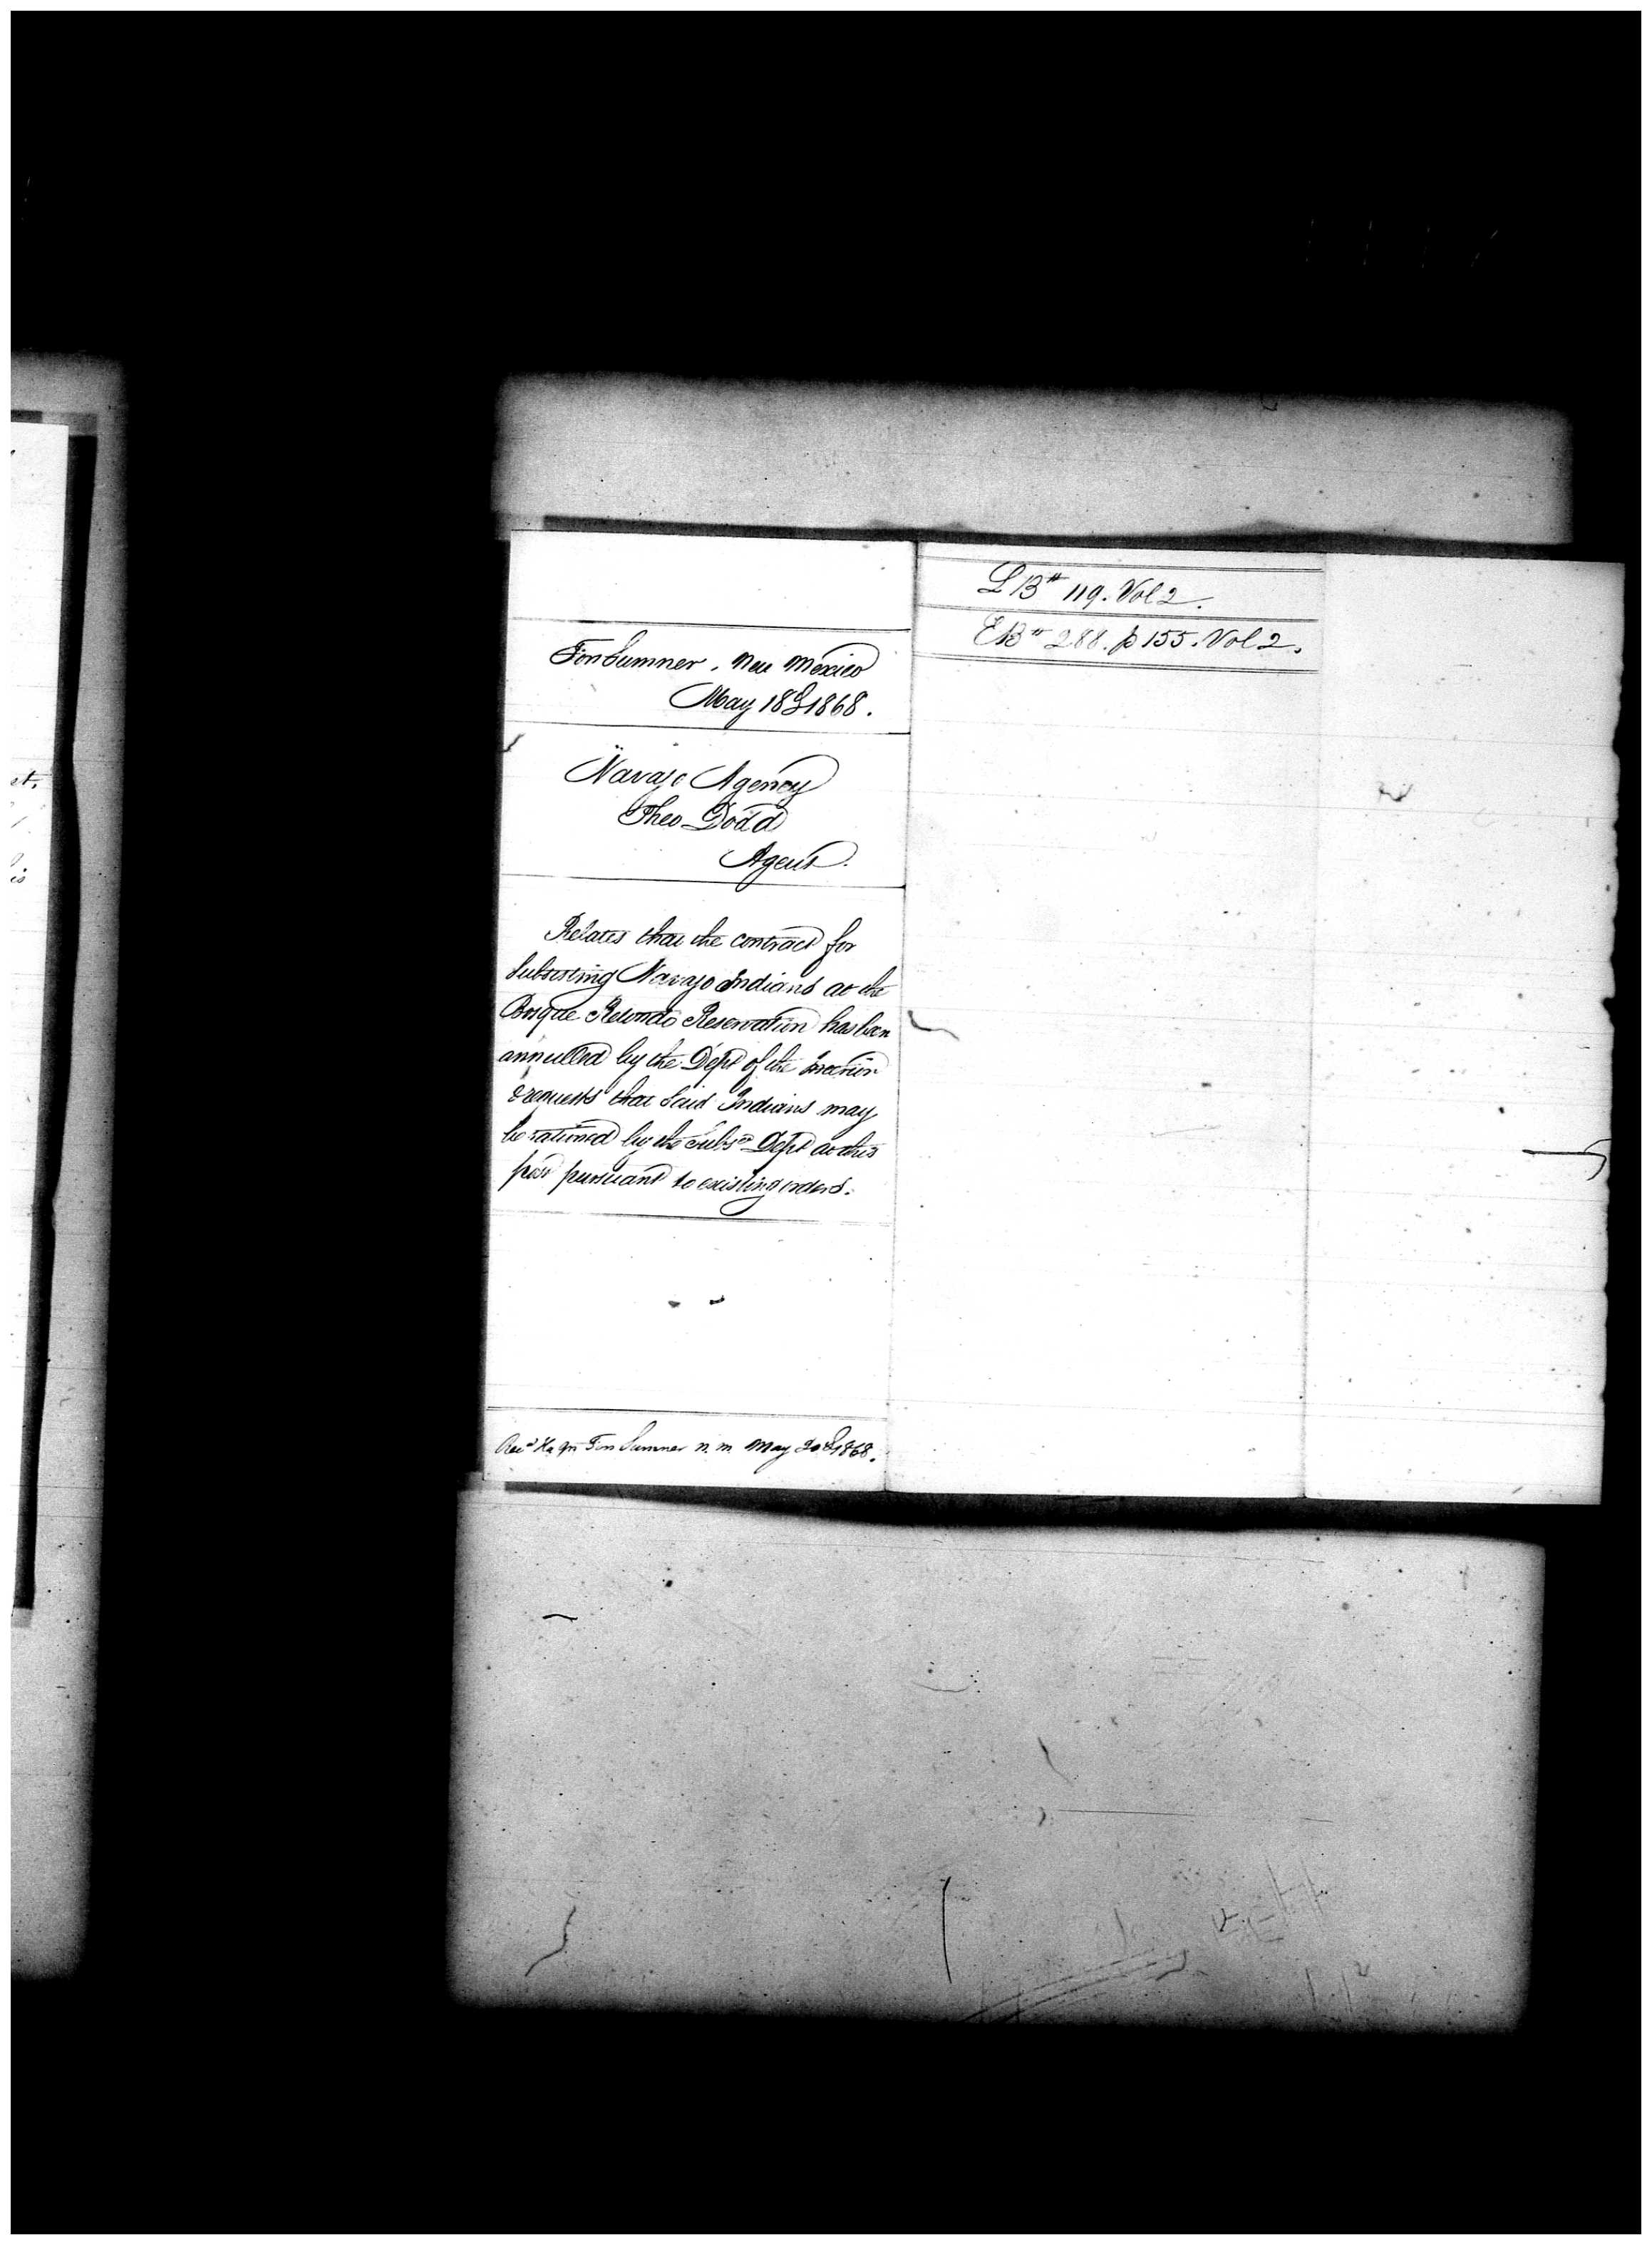 Fort Sumner, New Mexico
May 18th 1868.
Navajo Agency
Theo Dodd
Agent.
Relates that the contract for
Subsisting Navajo Indians at the
Bosque Redondo Reservation has been
annulled by the Dept of the Interior
& requests that Said Indians may
be rationed by the Subs Dept at this
post pursuant to existing orders.
Recd Hd Qrs Fort Sumner N. M. May 20th 1868.
L B # 119. Vol 2.
E B # 288. p 155. Vol 2.
et,
is